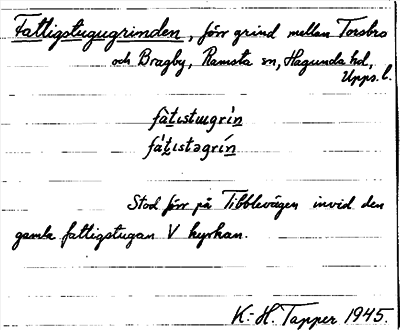 Fattigstugugrinden, förr grind mellan Torsbro
och Bragby, Ramsta sn, Hagunda hd,
Upps. l.
fàt̲ıstɯgrìn̲
fát̲ıstəgrín̲
Stod förr på Tibblevägen invid den
gamla fattigstugan V kyrkan.
K.-H. Tapper 1945.